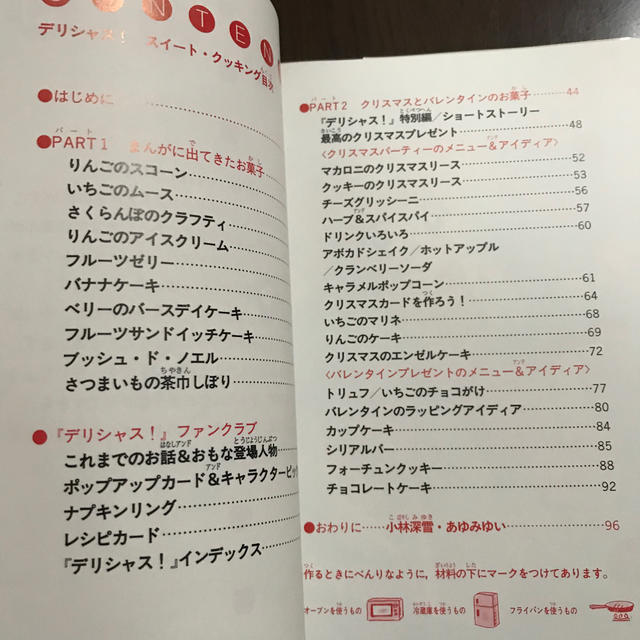 CONTEN
デリシャス！ スイート・クッキング目次
●はじめに
パート
●PART1 まんがに出てきたお菓子
りんごのスコーン
いちごのムース
さくらんぼのクラフティ
りんごのアイスクリーム
フルーツゼリー
バナナケーキ
ベリーのバースデイケーキ
フルーツサンドイッチケーキ
ブッシュ・ド・ノエル
ちやきん
さつまいもの茶巾しぼり
●『デリシャス！』ファンクラブ
はなしアンド とうじょうじんぶつ
これまでのお話&おもな登場人物
アンド
ポップアップカード&キャラクターピッ
ナプキンリング
レシピカード
『デリシャス！』インデックス
パート かし
●PART2 クリスマスとバレンタインのお菓子 44
とくべつへん
『デリシャス！』特別編／ショートストーリー
さいこう
最高のクリスマスプレゼント 48
アンド
〈クリスマスパーティーのメニュー&アイディア〉
マカロニのクリスマスリース 52
クッキーのクリスマスリース 53
チーズグリッシーニ 56
アンド
ハーブ&スパイスパイ 57
ドリンクいろいろ 60
アボカドシェイク／ホットアップル
／クランベリーソーダ
キャラメルポップコーン 61
つく
クリスマスカードを作ろう！ 64
いちごのマリネ 68
りんごのケーキ 69
クリスマスのエンゼルケーキ 72
アンド
〈バレンタインプレゼントのメニュー&アイディア〉
トリュフ／いちごのチョコがけ 77
バレンタインのラッピングアイディア 80
カップケーキ 84
シリアルバー 85
フォーチュンクッキー 88
チョコレートケーキ 92
こばやしみゆき
●おわりに……小林深雪・あゆみゆい 96
つく ざいりょう した
作るときにべんりなように，材料の下にマークをつけてあります。
オーブンを使うもの 冷蔵庫を使うもの フライパンを使うもの